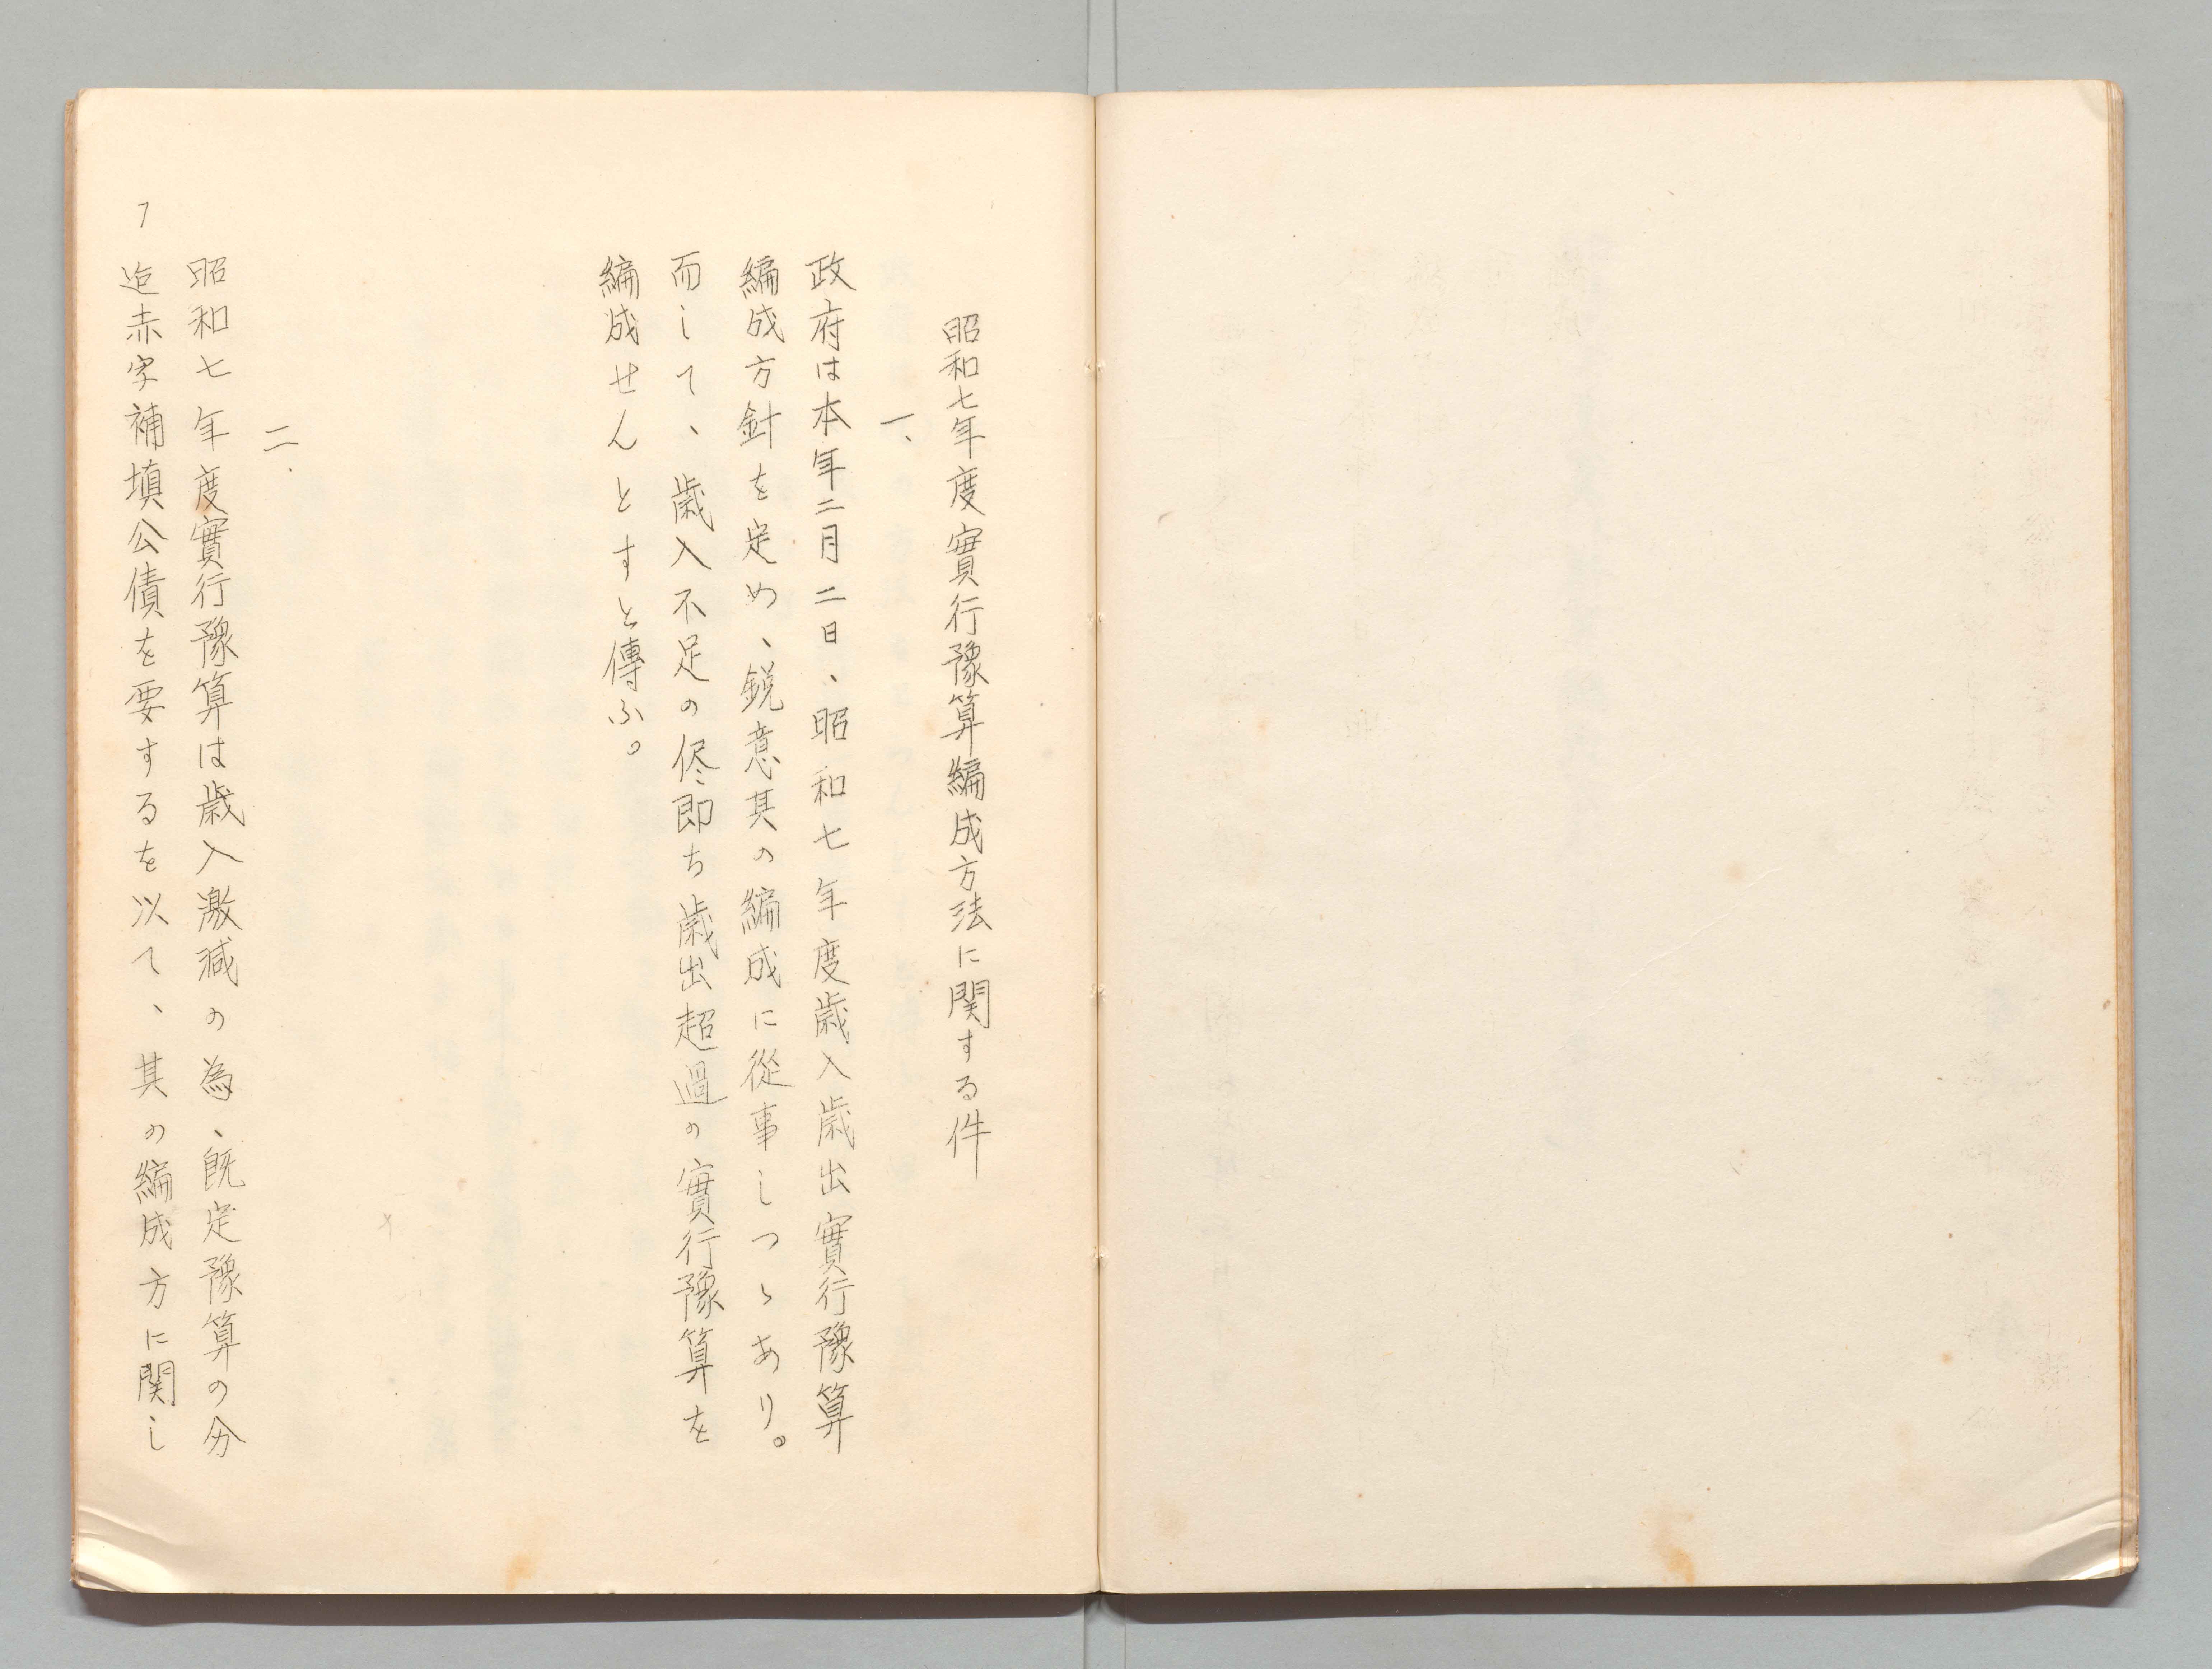 昭和七年度實行豫算編成方法に関する件
一、
政府は本年二月二日、昭和七年度歳入歳出實行豫算
編成方針を定め、鋭意其の編成に從事しつゝあり。
而して、歳入不足の侭即ち歳出超過の實行豫算を
編成せんとすと傳ふ。
二、
昭和七年度實行豫算は歳入激減の為、既定豫算の分
迄赤字補填公債を要するを以て、其の編成方に関し